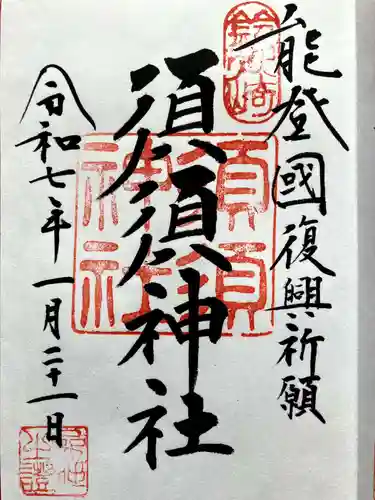 能登國復興祈願
須須神社
令和七年一月二十一日
須須神社